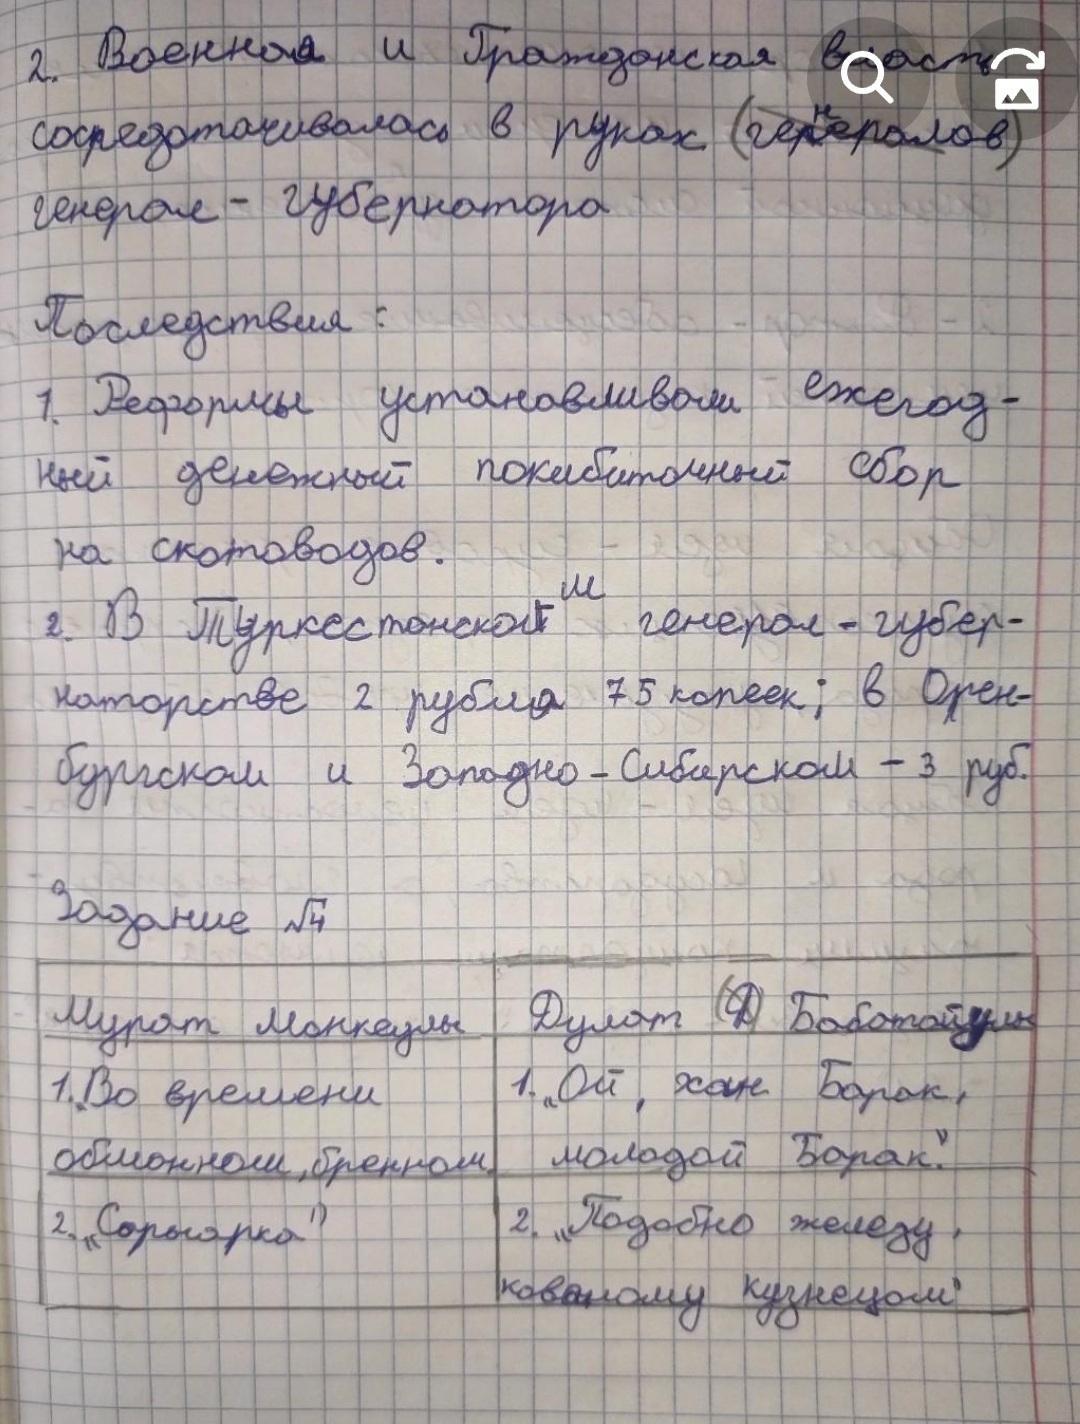 2. Военная и Гражданская власть
сосредотачивалась в руках (генералов)
генерал - губернатора
Последствия:
1. Реформы устанавливали ежегод-
ный денежный покибиточный сбор
на скотоводов.
2. В Туркестанском генерал - губер-
наторстве 2 рубля 75 копеек; в Орен-
бургском и Западно - Сибирском - 3 руб.
Задание №4
Мурат Монкеулы
Дулат (Д) Бабатайулы
1. „Во времени
обманном, бренном
1. „Ой, хан Барак,
молодой Барак."
2. „Сарыарка"
2. „Подобно железу,
кованому кузнецом"